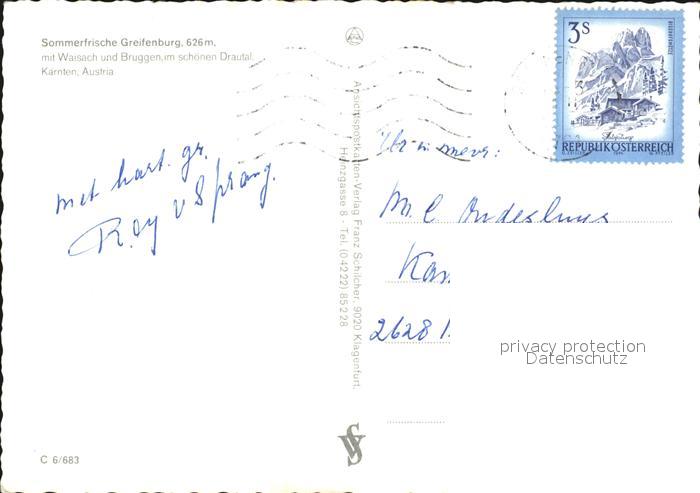 Sommerfrische Greifenburg, 626 m,
mit Waisach und Bruggen, im schönen Drautal,
Kärnten, Austria
met hart. gr.
Roy v Sprang.
Ansichtspostkarten-Verlag Franz Schilcher, 9020 Klagenfurt,
Hainzgasse 8 - Tel. (0 42 22) 85 2 28
3S
REPUBLIK ÖSTERREICH
mevr:
M. C.
26281.
privacy protection
Datenschutz
C 6/683